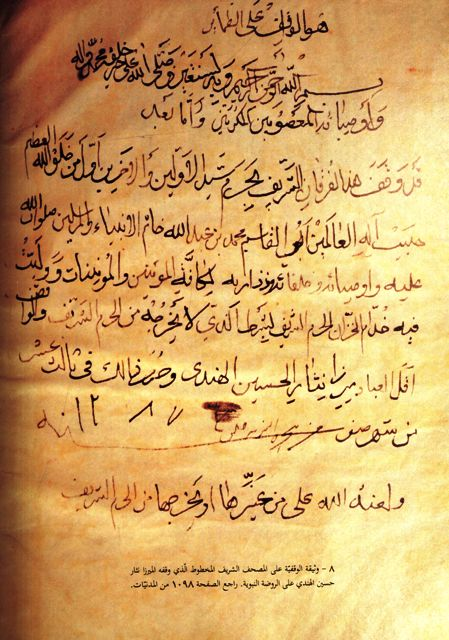 هو الواقف على الضمائر
بسم الله الرحمن الرحيم وبه نستعين وصلى الله على خير خلقه محمد وآله
وأوصيائه المعصومين المكرمين وأما بعد
قد وقف هذا الفرقان الشريف لحرم سيد الأولين والآخرين أول من خلق الله العظيم
حبيب آله العالمين أبو القاسم محمد بن عبد الله خاتم الأنبياء والمرسلين صلوات الله
عليه وأوصيائه وخلفائه وذراريه لكافة المؤمنين والمؤمنات ووليت
فيه خدام الخزان الحرم الشريف بشرط الذي لا يخرجه من الحرم الشريف
أقل العباد ميرزا نثار الحسين الهندي وحرر ذالك في ثالث عشر
من شهر صفر ١٢٨٧
ولعنة الله على من غيرها أو يخرجها من الحرم الشريف
٨ - وثيقة الوقفيّة على المصحف الشريف المخطوط الّذي وقفه الميرزا نثار
حسين الهندي على الروضة النبوية. راجع الصفحة ١٠٩٨ من المدنيّات.